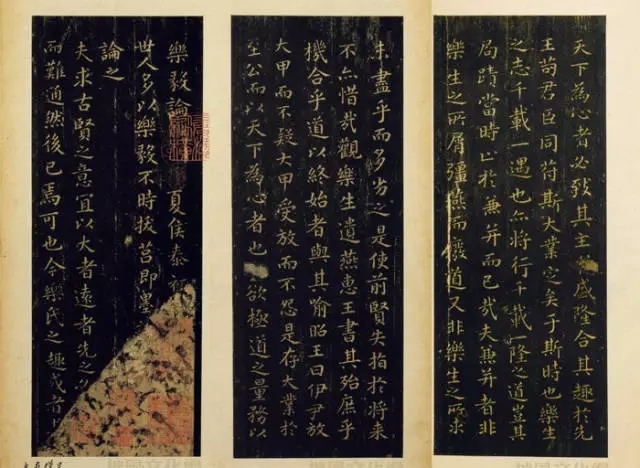 樂毅論 夏侯泰
世人多以樂毅不時拔莒即墨
論之
夫求古賢之意宜以大者遠者先之
而難通然後已焉可也今樂氏之趣或者
未盡乎而多劣之是使前賢失指於將来
不亦惜哉觀樂生遺燕惠王書其殆庶乎
機合乎道以終始者與其喻昭王曰伊尹放
大甲而不疑大甲受放而不怨是存大業於
至公而以天下為心者也欲極道之量務以
天下為心者必致其主盛隆合其趣於先
王苟君臣同符斯大業定矣于斯時也樂生
之志千載一遇也亦將行千載一隆之道豈其
局蹟當時止於兼并而已哉夫兼并者非
樂生之所屑彊燕而廢道又非樂生之所求